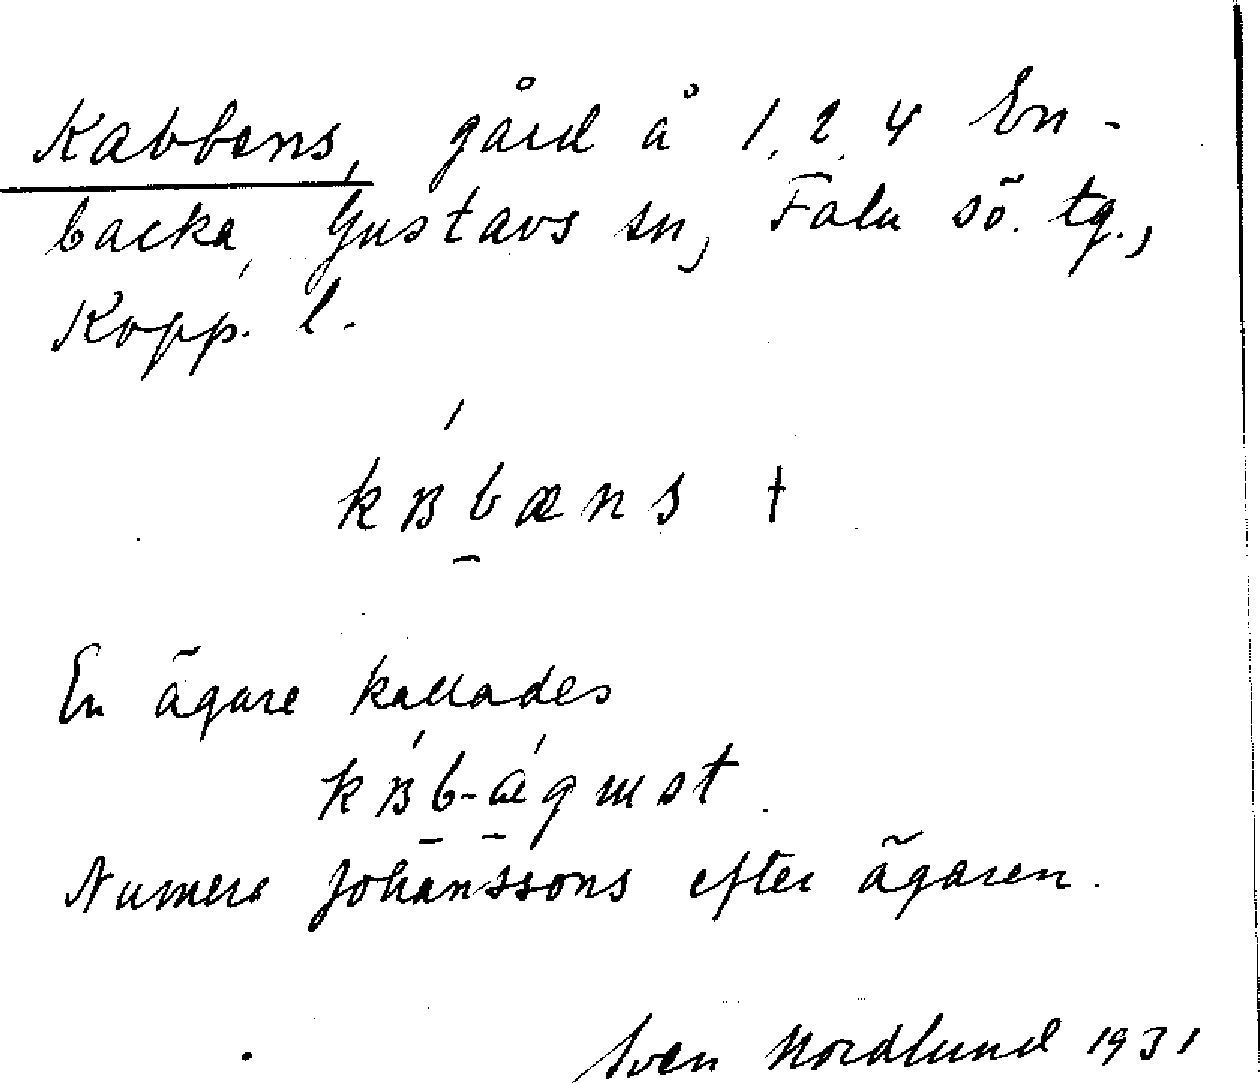 Kabbens, gård å 1, 2, 4 En-
backa, Gustavs sn, Falu sö. tg.,
Kopp. l.
kʙbæns †
En ägare kallades
kʙb-águst.
Numera Johanssons efter ägaren.
Sven Nordlund 1931